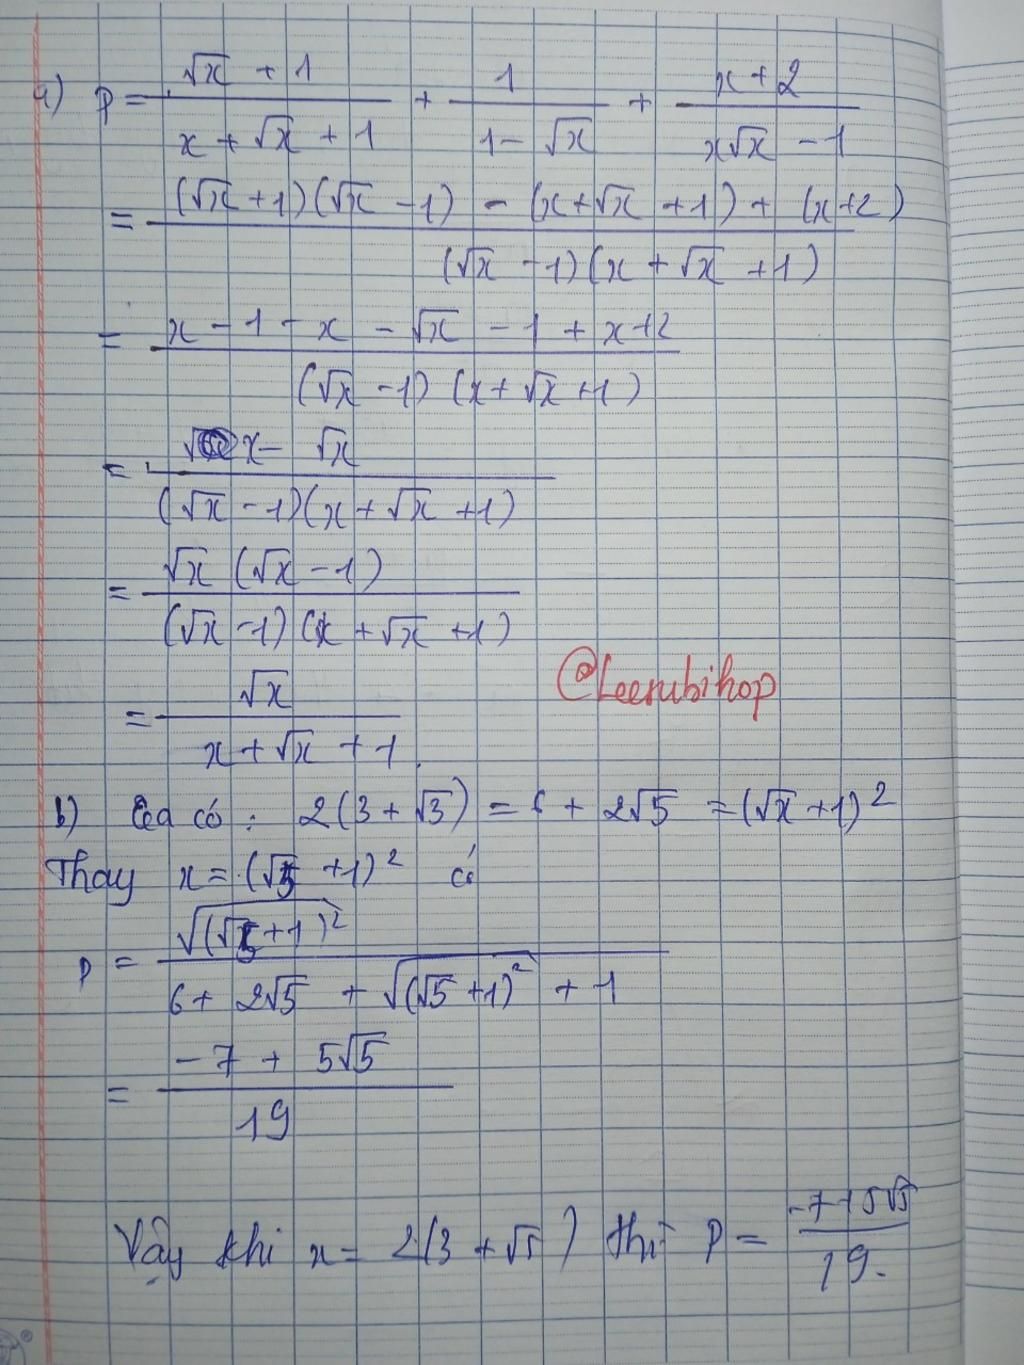 a) P = \frac{\sqrt{x} + 1}{x + \sqrt{x} + 1} + \frac{1}{1 - \sqrt{x}} + \frac{x + 2}{x\sqrt{x} - 1}
= \frac{(\sqrt{x} + 1)(\sqrt{x} - 1) - (x + \sqrt{x} + 1) + (x + 2)}{(\sqrt{x} - 1)(x + \sqrt{x} + 1)}
= \frac{x - 1 - x - \sqrt{x} - 1 + x + 2}{(\sqrt{x} - 1)(x + \sqrt{x} + 1)}
= \frac{x - \sqrt{x}}{(\sqrt{x} - 1)(x + \sqrt{x} + 1)}
= \frac{\sqrt{x}(\sqrt{x} - 1)}{(\sqrt{x} - 1)(x + \sqrt{x} + 1)}
= \frac{\sqrt{x}}{x + \sqrt{x} + 1}.
@Leesubihop
b) Ta có : 2(3 + \sqrt{3}) = 6 + 2\sqrt{5} = (\sqrt{x} + 1)^2
Thay x = (\sqrt{5} + 1)^2 có
P = \frac{\sqrt{(\sqrt{5} + 1)^2}}{6 + 2\sqrt{5} + \sqrt{(\sqrt{5} + 1)^2} + 1}
= \frac{-7 + 5\sqrt{5}}{19}
Vậy khi x = 2(3 + \sqrt{5}) thì P = \frac{-7 + 5\sqrt{5}}{19}.